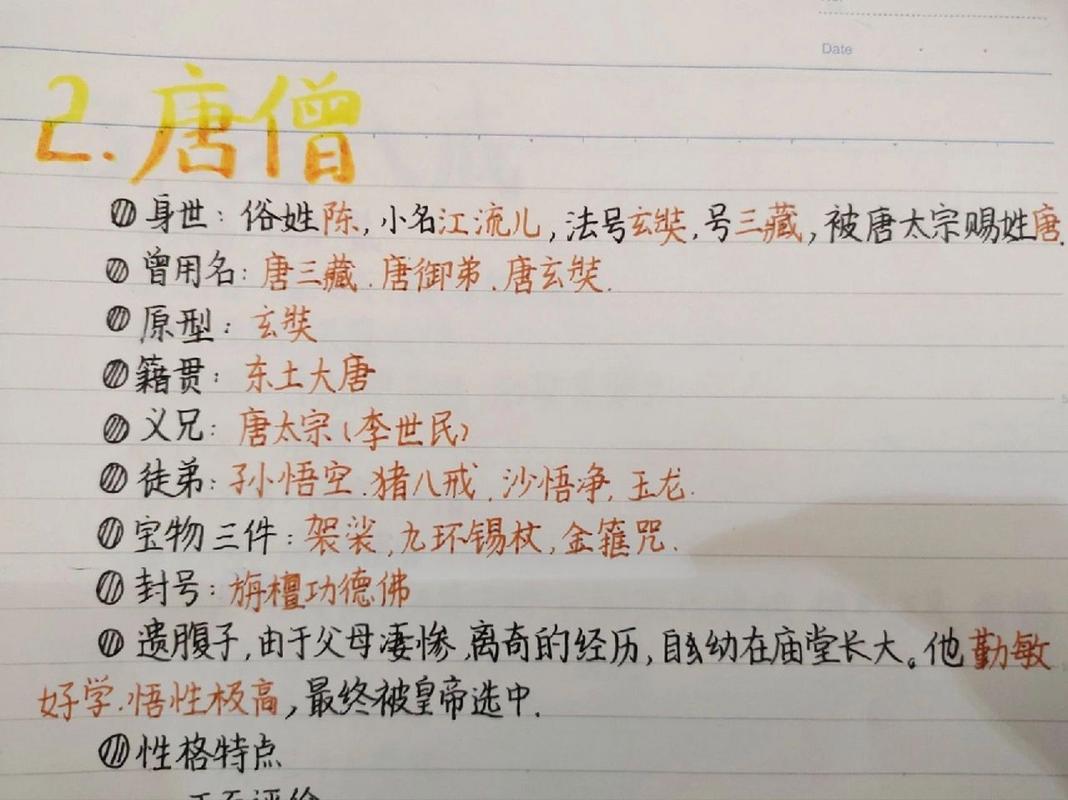 Date
2.唐僧
身世：俗姓陈，小名江流儿，法号玄奘，号三藏，被唐太宗赐姓唐.
曾用名：唐三藏.唐御弟.唐玄奘.
原型：玄奘
籍贯：东土大唐
义兄：唐太宗(李世民)
徒弟：孙悟空.猪八戒.沙悟净.玉龙.
宝物三件：袈裟,九环锡杖,金箍咒.
封号：旃檀功德佛
遗腹子,由于父母凄惨.离奇的经历,自幼在庙堂长大。他勤敏
好学.悟性极高,最终被皇帝选中.
性格特点